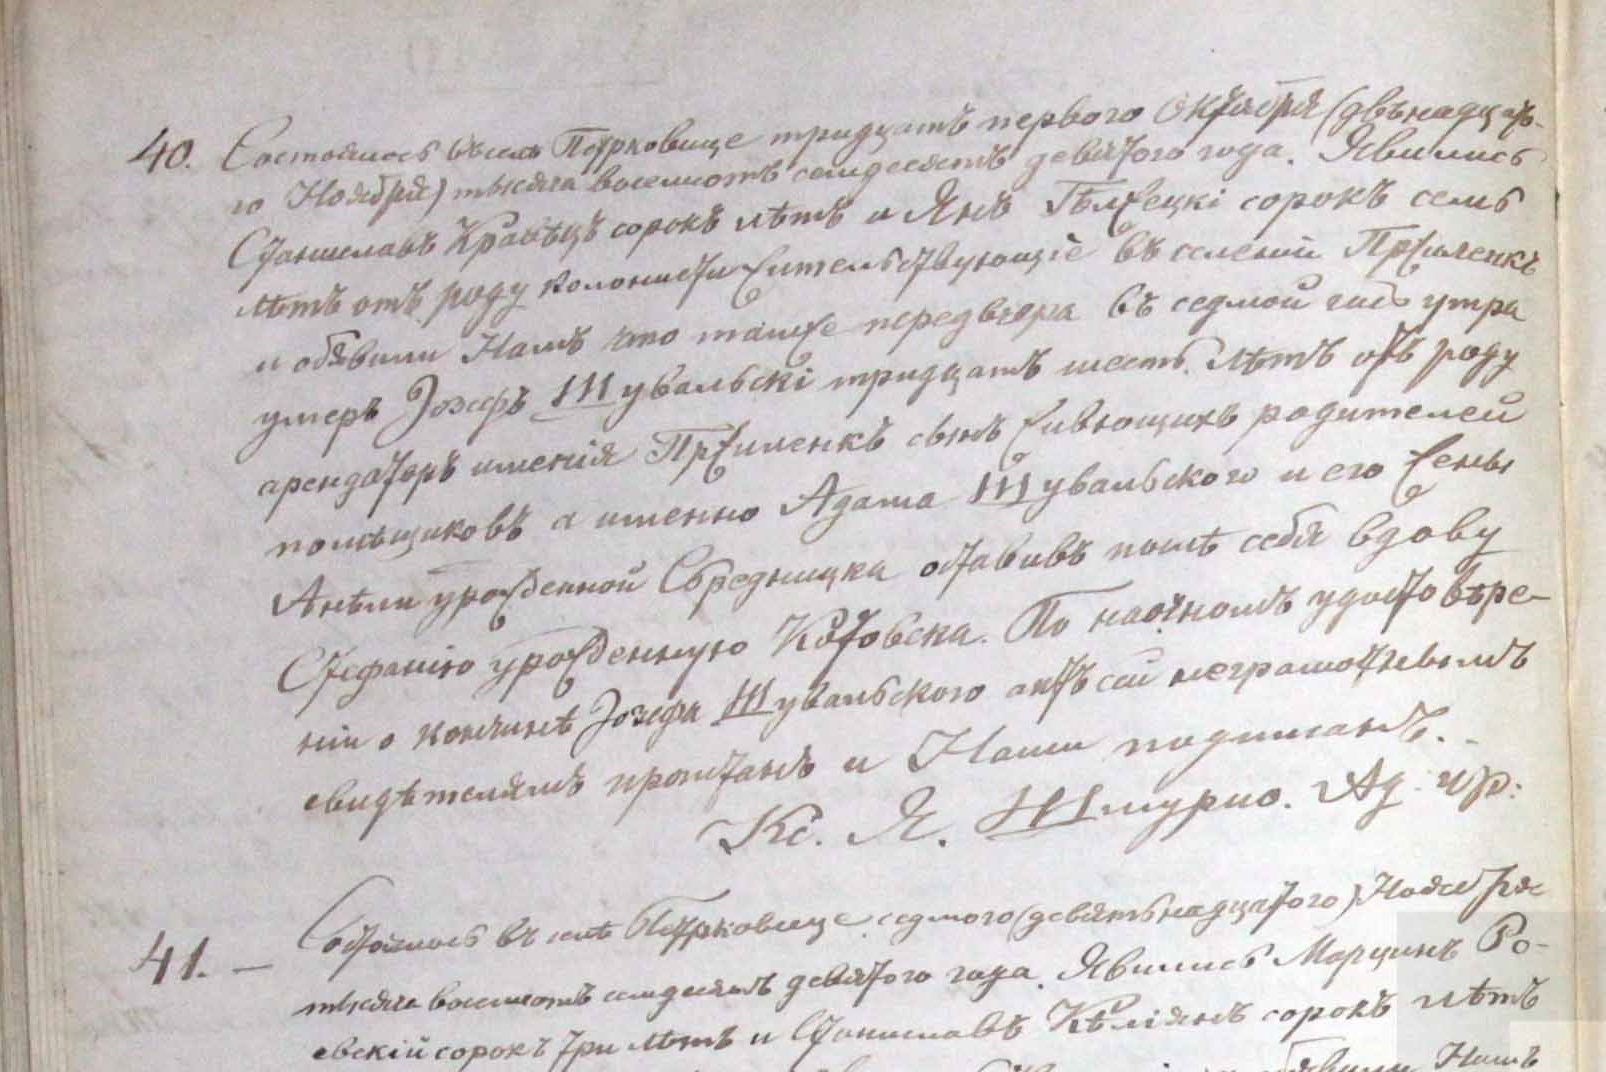 40. Состоялось въ селѣ Петрковице тридцать перваго Октября (двѣнадцата-
го Ноября) тысяча восемьсотъ семдесятъ девятого года. Явились
Станиславъ Кравецъ сорокъ лѣтъ и Янъ сорокъ семь
лѣтъ отъ роду колонисты жительствующіе въ селеніи
и обявили Намъ что тамже передвчера въ седмой часъ утра
умеръ Іозефъ Шувальскі тридцать шесть лѣтъ отъ роду
арендаторъ именія сынъ живющихъ родителей
помѣщиковъ а именно Адама Шувальского и его жены
Анѣли урожденной Средницка оставивъ послѣ себя вдову
Стефанію урожденную Котовска. По наочномъ удостовѣре-
ніи о кончинѣ Іозефа Шувальского актъ сей неграмотнымъ
свидѣтелямъ прочтанъ и Нами подписанъ.
Кс. Я. Шмурио. Ад. пр:
41. — Состоялось въ селѣ Петрковице седмого (девятьнадцатого) Ноября
тысяча восемьсотъ семдесятъ девятого года. Явились Марцинъ Ро-
евскій сорокъ три лѣтъ и Станиславъ сорокъ лѣтъ
обявили Намъ